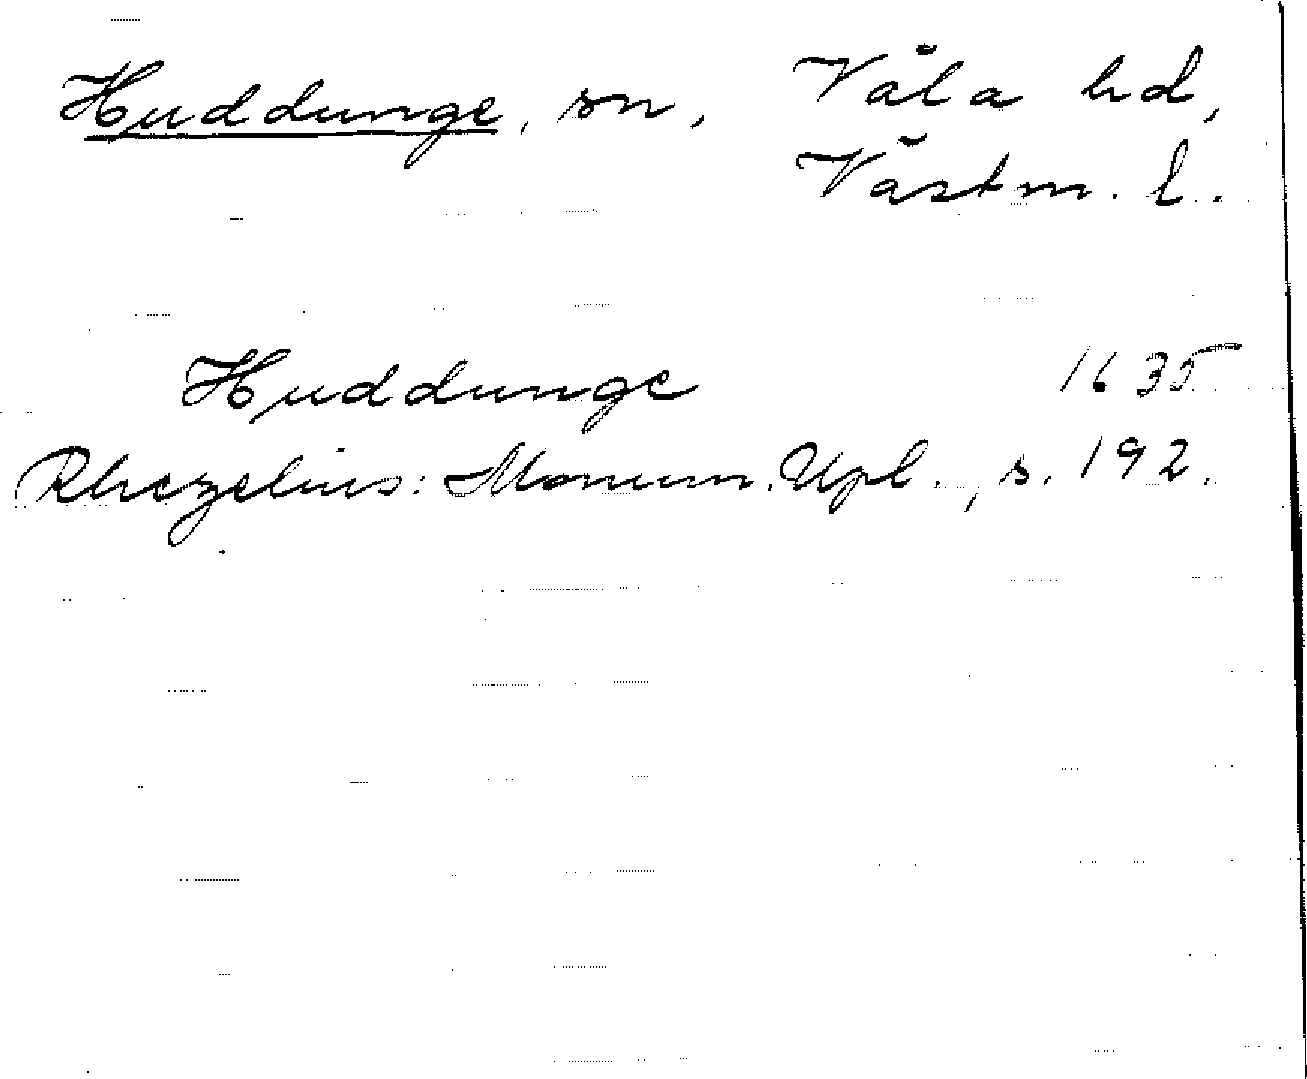 Huddunge, sn, Våla hd,
Västm. l.
Huddunge 1635
Rhezelius: Monum. Upl., s. 192.